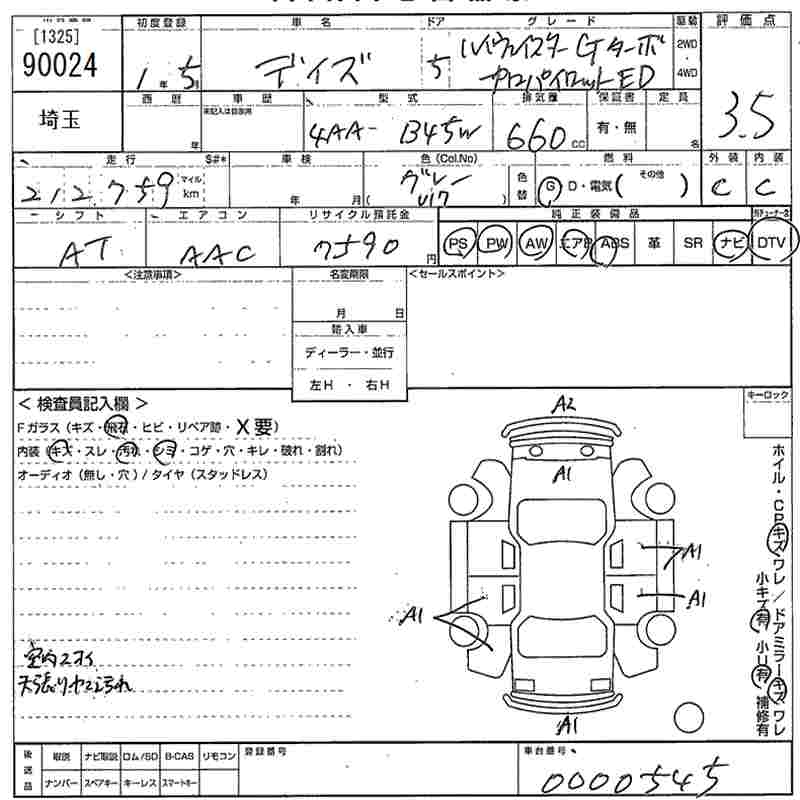 [1325]
90024
初度登録
車名
ドア
グレード
駆動
評価点
1年 5月
デイズ
5
ハイウェイスター Gターボ
プロパイロットED
2WD
・
4WD
3.5
埼玉
西暦
車歴
未記入は自家用
型式
排気量
保証書
定員
年
4AA- B45W
660 cc
有・無
名
走行
S#*
車検
色 (Col.No)
燃料
外装
内装
212759
マイル
km
年 月
グレー
( )
色替
G D・電気 ( その他 )
C
C
シフト
エアコン
リサイクル預託金
純正装備品
AT
AAC
7590 円
PS
PW
AW
エアB
ABS
革
SR
ナビ
DTV
<注意事項>
名変期限
<セールスポイント>
月 日
輸入車
ディーラー・並行
左H ・ 右H
< 検査員記入欄 >
キーロック
Fガラス (キズ・飛石・ヒビ・リペア跡・X要)
内装 (キズ・スレ・汚れ・シミ・コゲ・穴・キレ・破れ・割れ)
オーディオ (無し・穴) / タイヤ (スタッドレス)
A2
A1
A1
A1
A1
A1
ホイル・CPキズワレ/ドアミラーキズワレ
小キズ有 小U有 補修有
室内スレ
天張りヤニ汚れ
後送品
取説
ナビ取説
ロム/SD
B-CAS
リモコン
登録番号
車台番号
ナンバー
スペアキー
キーレス
スマートキー
0000545